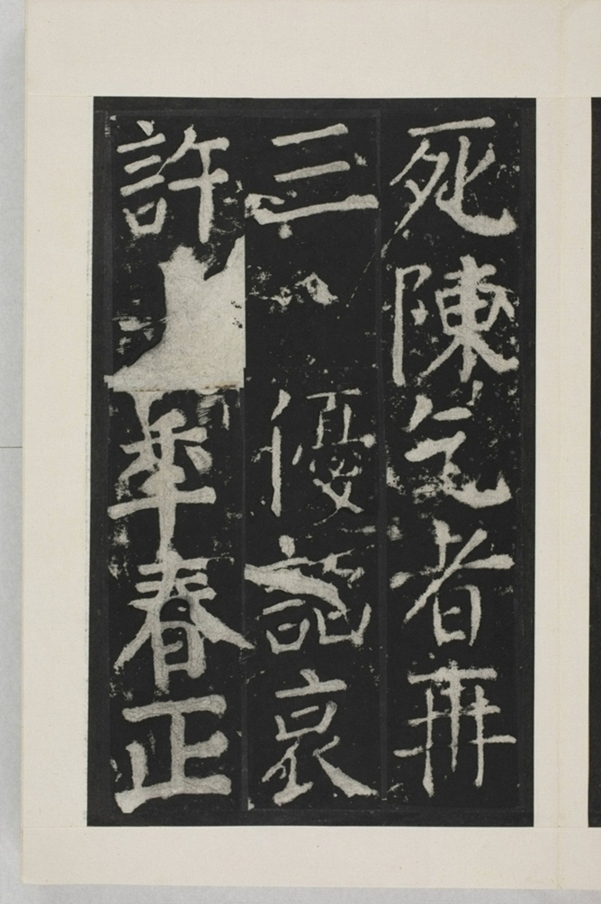 死陳乞者再
三優詔哀
許年春正